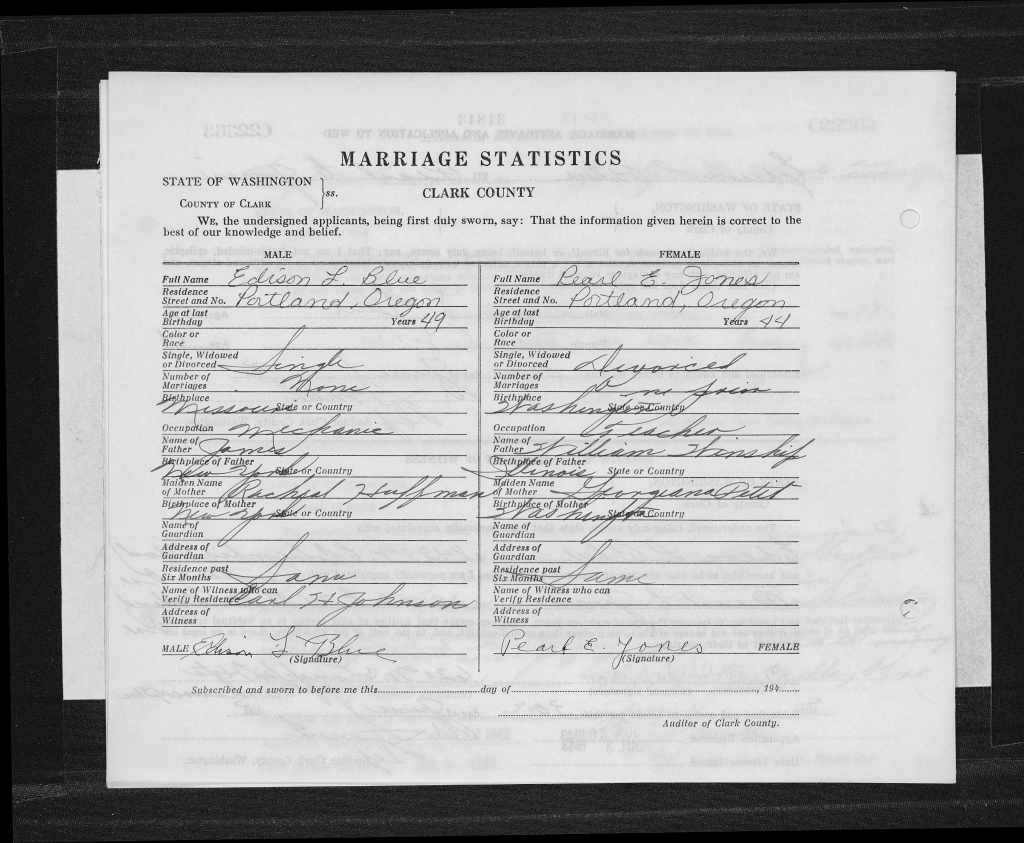 MARRIAGE STATISTICS
STATE OF WASHINGTON
COUNTY OF CLARK
ss.
CLARK COUNTY
WE, the undersigned applicants, being first duly sworn, say: That the information given herein is correct to the
best of our knowledge and belief.
MALE
Full Name Edison L. Blue
Residence
Street and No. Portland, Oregon
Age at last
Birthday Years 49
Color or
Race
Single, Widowed
or Divorced Single
Number of
Marriages None
Birthplace
Missouri State or Country
Occupation Mechanic
Name of
Father James
Birthplace of Father
New York State or Country
Maiden Name
of Mother Racheal Huffman
Birthplace of Mother
New York State or Country
Name of
Guardian
Address of
Guardian
Residence past
Six Months Same
Name of Witness who can
Verify Residence Carl H Johnson
Address of
Witness
MALE Edison L Blue
(Signature)
FEMALE
Full Name Pearl E. Jones
Residence
Street and No. Portland, Oregon
Age at last
Birthday Years 44
Color or
Race
Single, Widowed
or Divorced Divorced
Number of
Marriages One prior
Birthplace
Washington State or Country
Occupation Teacher
Name of
Father William Winship
Birthplace of Father
Illinois State or Country
Maiden Name
of Mother Georgiana Petit
Birthplace of Mother
Washington State or Country
Name of
Guardian
Address of
Guardian
Residence past
Six Months Same
Name of Witness who can
Verify Residence
Address of
Witness
Pearl E. Jones FEMALE
(Signature)
Subscribed and sworn to before me this day of , 194
Auditor of Clark County.